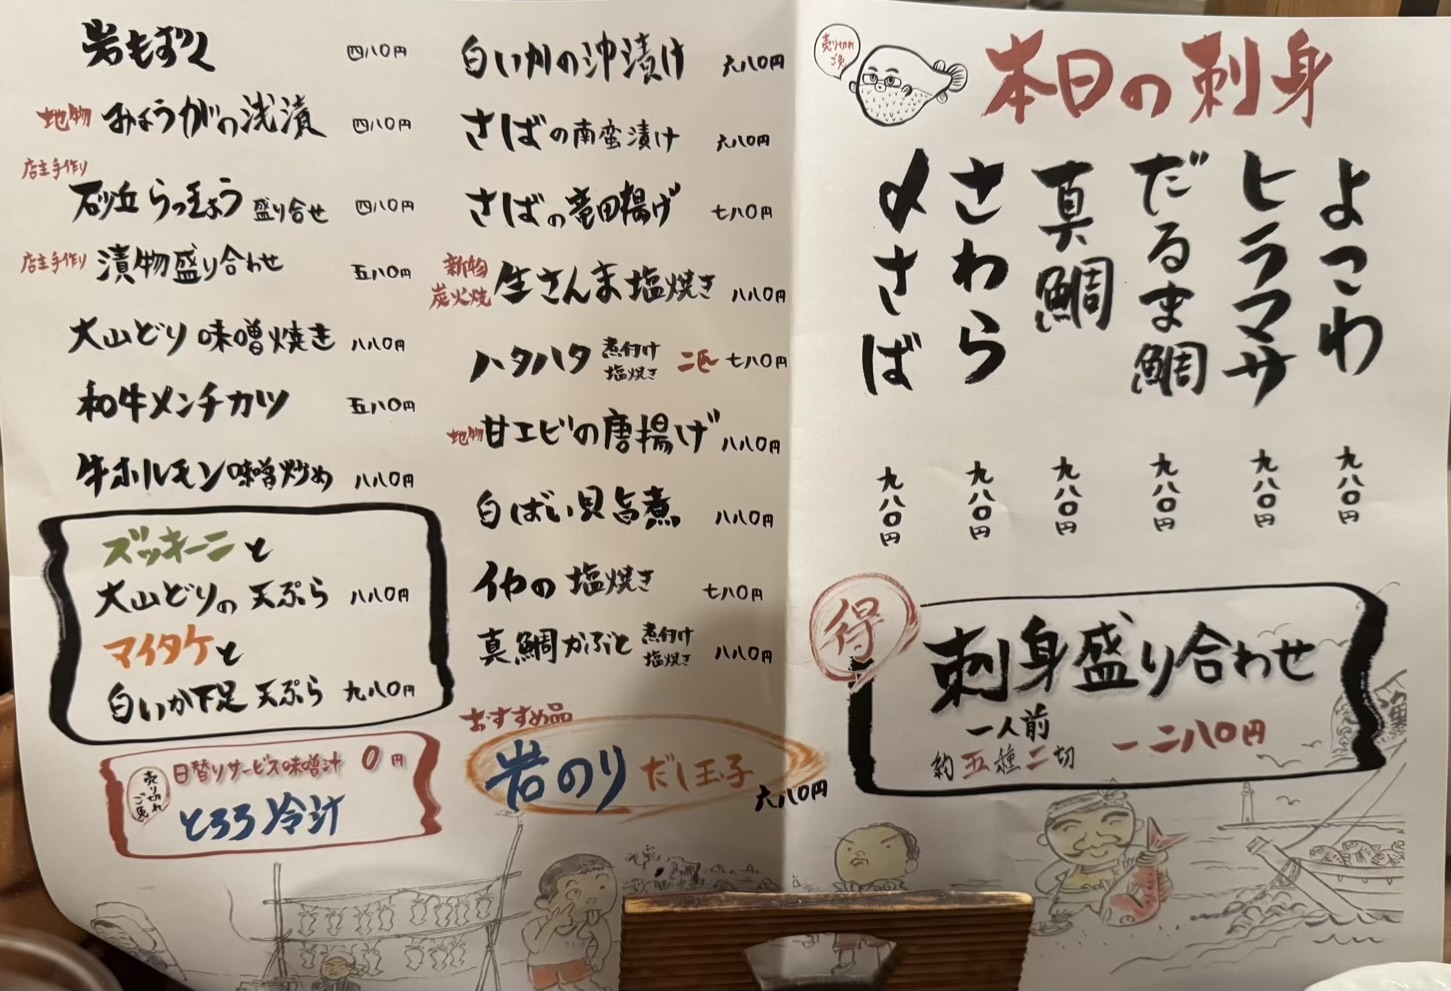 本日の刺身
売り切れ
ご免
よこわ 九八〇円
ヒラマサ 九八〇円
だるま鯛 九八〇円
真鯛 九八〇円
さわら 九八〇円
〆さば 九八〇円
得
刺身盛り合わせ
一人前
約五種二切 一二八〇円
白いかの沖漬け 六八〇円
さばの南蛮漬け 六八〇円
さばの竜田揚げ 七八〇円
新物
炭火焼
生さんま塩焼き 八八〇円
ハタハタ 煮付け 塩焼き 二匹 七八〇円
地物 甘エビの唐揚げ 八八〇円
白ばい貝旨煮 八八〇円
イカの塩焼き 七八〇円
真鯛かぶと 煮付け 塩焼き 八八〇円
おすすめ品
岩のりだし玉子 六八〇円
岩もずく 四八〇円
地物 みょうがの浅漬 四八〇円
店主手作り
砂丘らっきょう盛り合せ 四八〇円
店主手作り 漬物盛り合わせ 五八〇円
大山どり味噌焼き 八八〇円
和牛メンチカツ 五八〇円
牛ホルモン味噌炒め 八八〇円
ズッキーニと
大山どりの天ぷら 八八〇円
マイタケと
白いか下足天ぷら 九八〇円
日替りサービス味噌汁 0円
売り切れ
ご免
とろろ冷汁